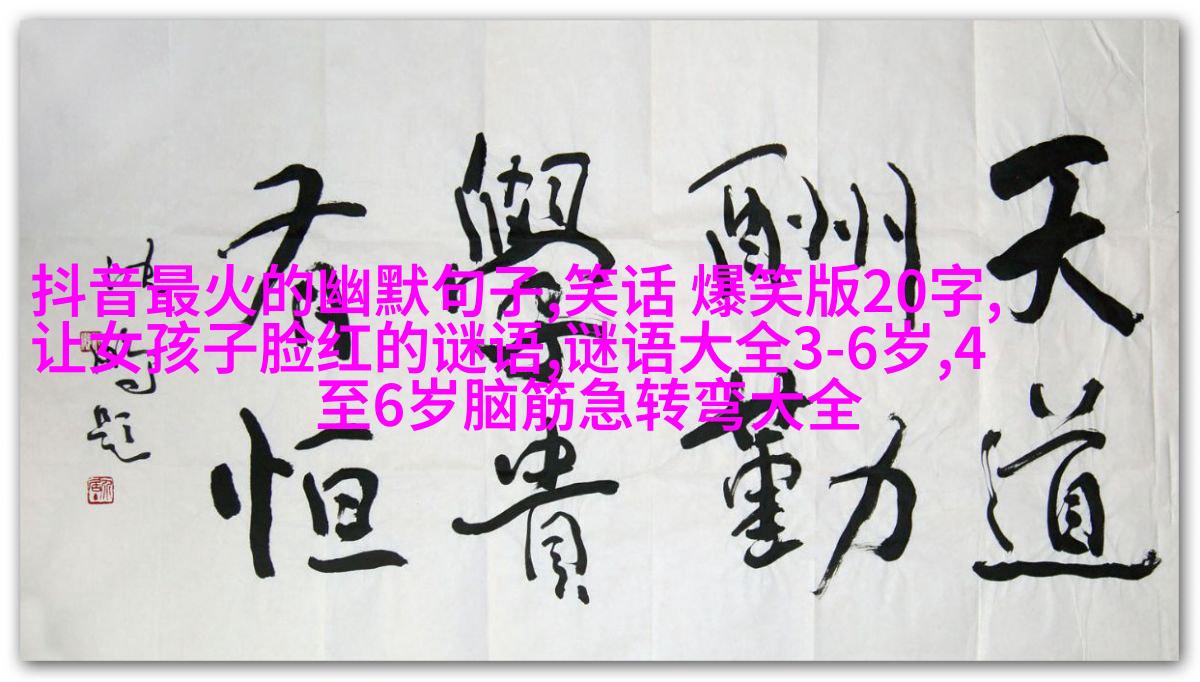 抖音最火的幽默句子,笑话 爆笑版20字,
让女孩子脸红的谜语,谜语大全3-6岁,4
至6岁脑筋急转弯大全
天道
酬勤
學貴
有恒
题